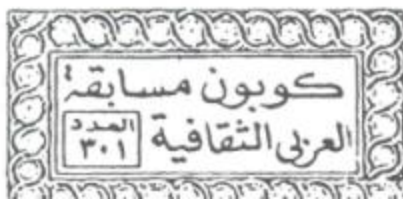 كوبون مسابقة
العربى الثقافية
العدد
٣٠١